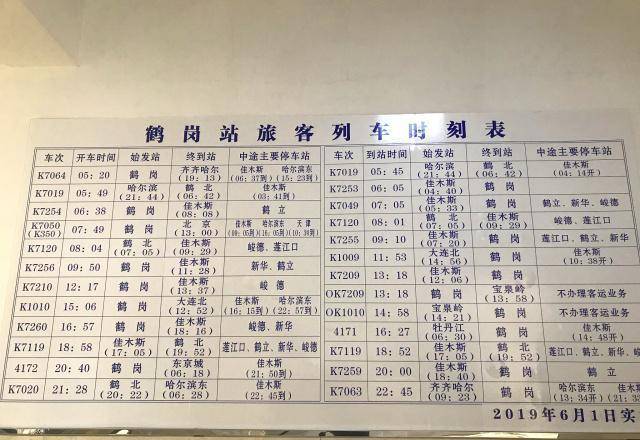 鹤岗站旅客列车时刻表
车次 开车时间 始发站 终到站 中途主要停车站
K7064 05:20 鹤岗 齐齐哈尔(19:13) 佳木斯(06:37到) 哈尔滨东(15:23到)
K7019 05:49 哈尔滨(21:44) 鹤北(06:42) 佳木斯(03:41到)
K7254 06:38 鹤岗 佳木斯(08:08) 鹤立
K7050(K350) 07:49 鹤岗 北京(13:00) 佳木斯 哈尔滨东 天津
K7120 08:04 鹤北(07:05) 佳木斯(09:29) 峻德、莲江口
K7256 09:50 鹤岗 佳木斯(11:28) 新华、鹤立
K7210 12:17 鹤岗 佳木斯(13:37) 峻德
K1010 15:06 鹤岗 大连北(12:52) 佳木斯(16:15到) 哈尔滨东(22:57到)
K7260 16:57 鹤岗 佳木斯(18:16) 峻德、新华
K7119 18:58 佳木斯(17:05) 鹤北(19:52) 莲江口、鹤立、新华、峻德
4172 20:40 鹤岗 东京城(06:18) 佳木斯(21:50到)
K7020 21:28 鹤北(20:22) 哈尔滨东(06:28) 佳木斯(22:45到)
车次 到站时间 始发站 终到站 中途主要停车站
K7019 05:45 哈尔滨(21:44) 鹤北(06:42) 佳木斯(04:14开)
K7253 06:05 佳木斯(04:40) 鹤岗
K7049 07:05 佳木斯(05:33) 鹤岗 鹤立、新华、峻德
K7120 08:01 鹤北(07:05) 佳木斯(09:29) 峻德、莲江口
K7255 09:10 佳木斯(07:20) 鹤岗 莲江口、鹤立、新华
K1009 11:53 大连北(14:56) 鹤岗 佳木斯(10:38开)
K7209 13:18 佳木斯(12:06) 鹤岗
OK7209 13:18 鹤岗 宝泉岭(13:58) 不办理客运业务
OK1010 14:58 宝泉岭(14:21) 鹤岗 不办理客运业务
4171 16:27 牡丹江(06:30) 鹤岗 佳木斯(14:48开)
K7119 18:52 佳木斯(17:05) 鹤北(19:52) 莲江口、鹤立、新华、峻德
K7259 20:00 佳木斯(18:40) 鹤岗 鹤立
K7063 22:45 齐齐哈尔(09:23) 鹤岗 哈尔滨东(13:34开) 佳木斯
2019年6月1日实